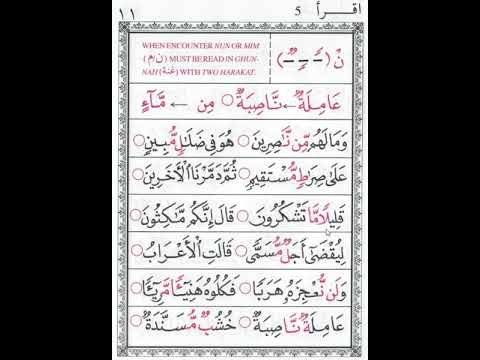 اقرأ 5 ١١
نْ (ـٌـ ـٍـ ـً)
WHEN ENCOUNTER NUN OR MIM
(ن/م) MUST BE READ IN GHUN-
NAH (غنة) WITH TWO HARAKAT.
عَامِلَةٌ ← نَّاصِبَةٌ ○ مِن ← مَّآءٍ
وَمَا لَهُم مِّن نَّٰصِرِينَ ○ هُوَ فِى ضَلَٰلٍ مُّبِينٍ ○
عَلَىٰ صِرَٰطٍ مُّسْتَقِيمٍ ○ ثُمَّ دَمَّرْنَا ٱلْأَخَرِينَ ○
قَلِيلًا مَّا تَشْكُرُونَ ○ قَالَ إِنَّكُم مَّٰكِثُونَ ○
لِيُقْضَىٰٓ أَجَلٌ مُّسَمًّى ○ قَالَتِ ٱلْأَعْرَابُ ○
وَلَن نُّعْجِزَهُۥ هَرَبًا ○ فَكُلُوهُ هَنِيٓـًٔا مَّرِيٓـًٔا ○
عَامِلَةٌ نَّاصِبَةٌ ○ خُشُبٌ مُّسَنَّدَةٌ ○